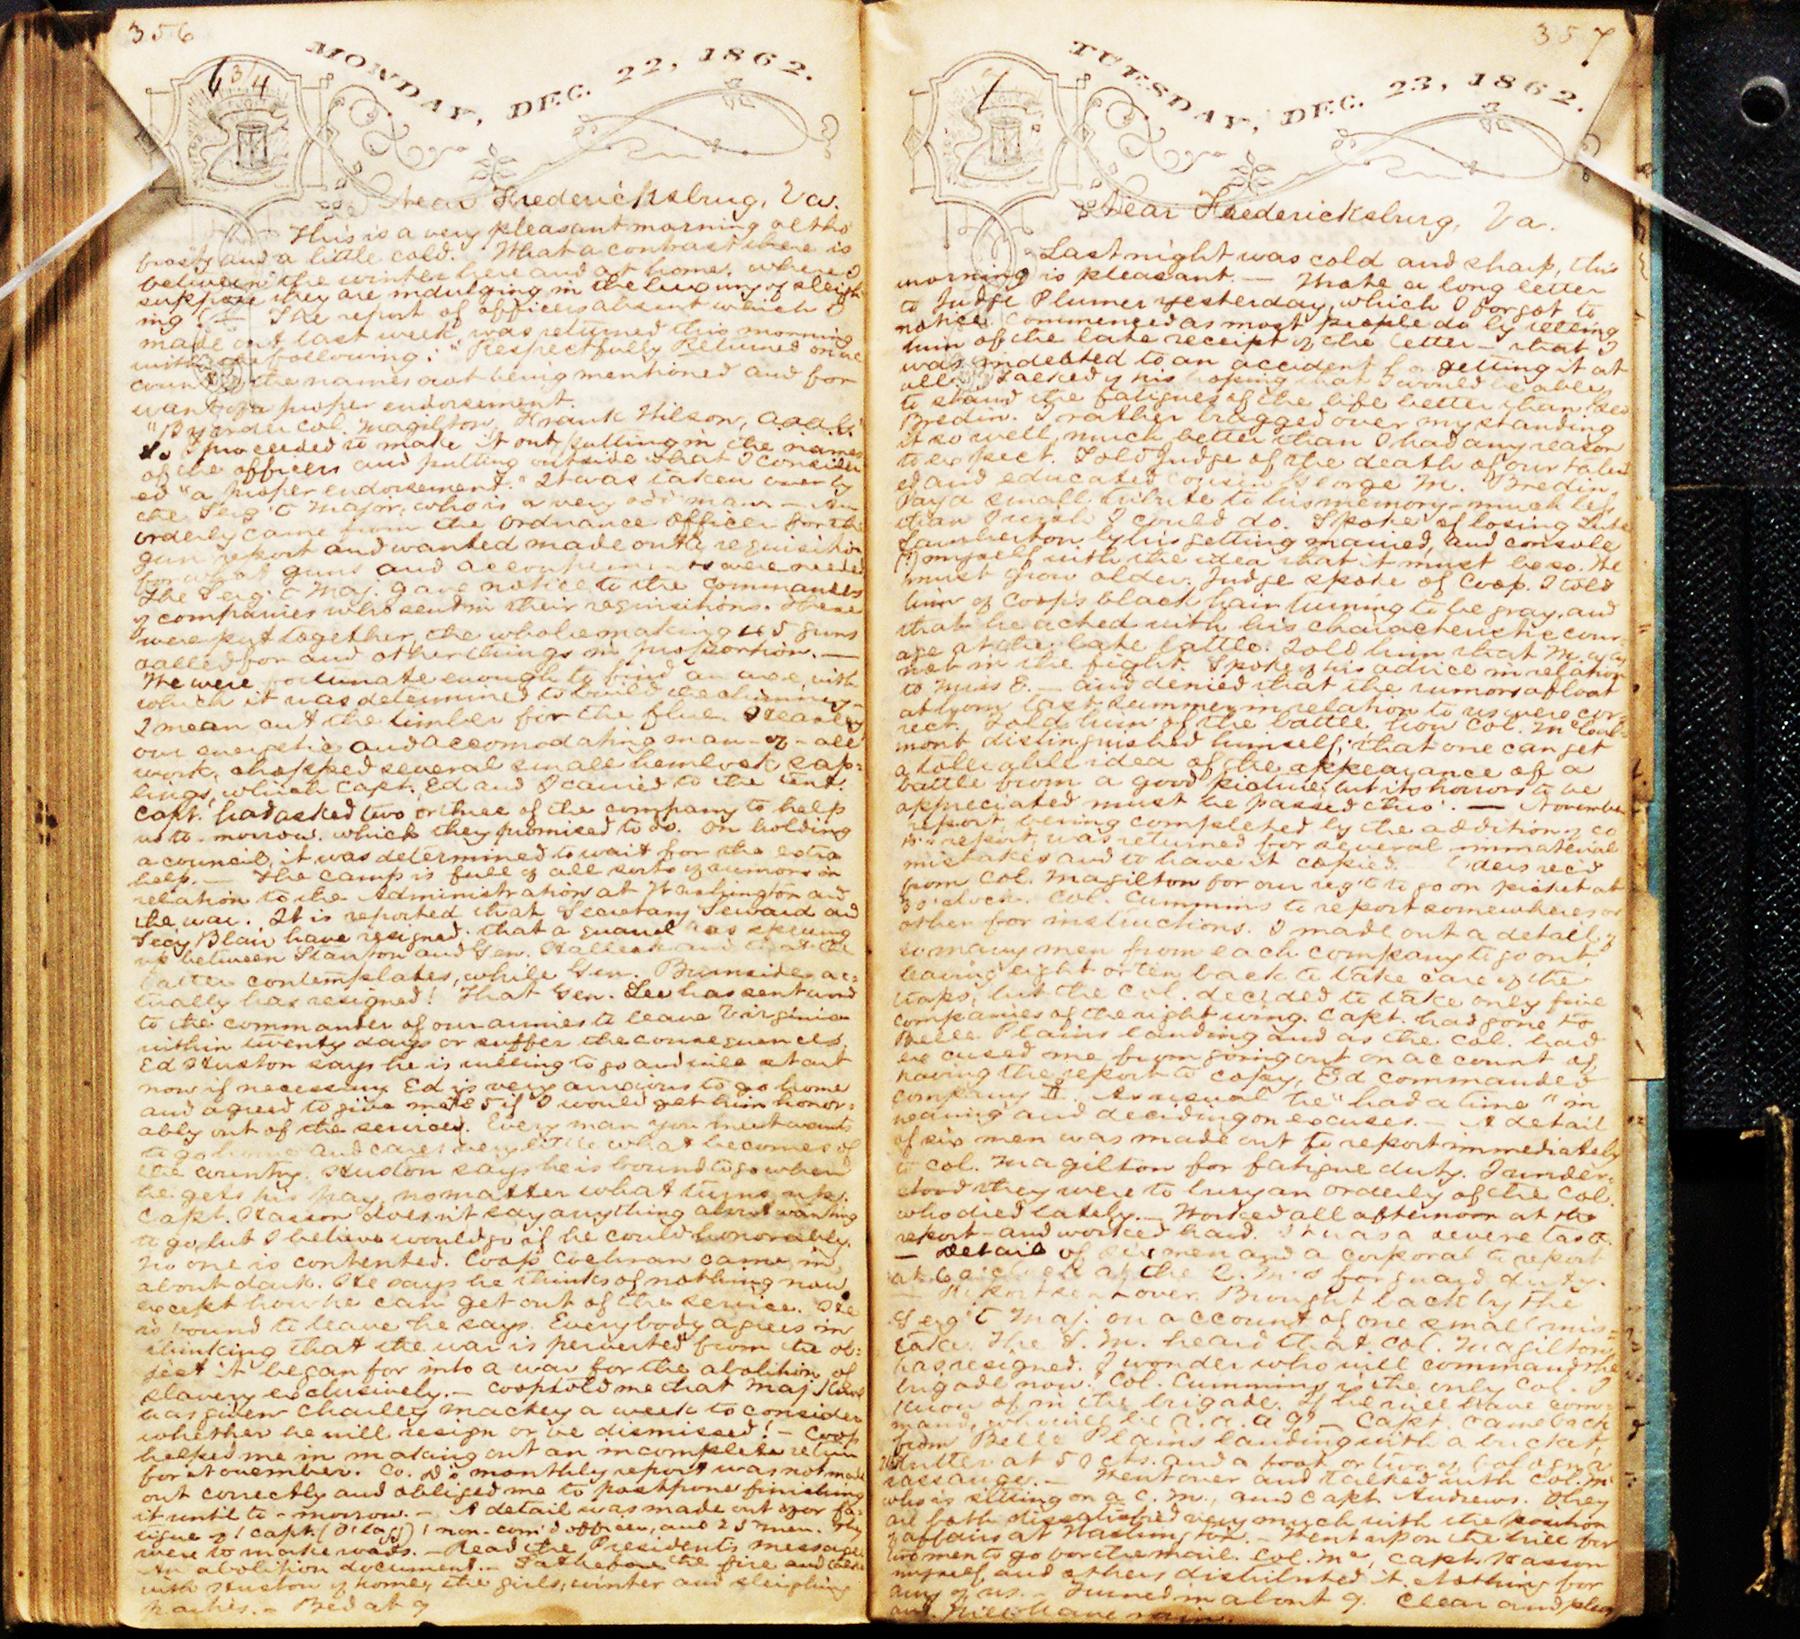 356
6 3/4
MONDAY, DEC. 22, 1862.
Near Fredericksburg, Va.
This is a very pleasant morning altho'
frosty and a little cold. What a contrast there is
between the winter here and at home, where I
suppose they are indulging in the luxury of sleigh
ing! — The report of officers absent which I
made out last week was returned this morning
with the following: "Respectfully Returned on ac
count of the names not being mentioned and for
want of a proper endorsement.
"By order Col. Magilton, Frank Wilson, A.A.A.G."
So I proceeded to make it out, putting in the names
of the officers and putting outside what I consider
ed "a proper endorsement." It was taken over by
the Serg't Major, who is a very odd man — An
orderly came from the Ordnance Officer for the
gun report and wanted made out a requisition
for what guns and accoutrements were needed
The Serg't Maj. gave notice to the commanders
of companies who sent in their requisitions. These
were put together, the whole making 45 guns
called for and other things in proportion. —
We were fortunate enough to find an axe, with
which it was determined to build the chimney —
I mean cut the timber for the flue. Stanley
our energetic and accomodating man-of-all
work, chopped several small hemlock sap-
lings, which Capt., Ed and I carried to the tent.
Capt. had asked two or three of the company to help
us to-morrow, which they promised to do. On holding
a council, it was determined to wait for the extra
help. — The camp is full of all sorts of rumors in
relation to the Administration at Washington and
the war. It is reported that Secretary Seward and
Secy Blair have resigned, that a quarrel has sprung
up between Stanton and Gen. Halleck and that the
latter contemplates, while Gen. Burnside ac-
tually has resigned! That Gen. Lee has sent word
to the commander of our armies to leave Virginia
within twenty days or suffer the consequences.
Ed Huston says he is willing to go and will start
now if necessary. Ed is very anxious to go home
and agreed to give me $5 if I would get him honor-
ably out of the service. Every man you meet wants
to go home and cares very little what becomes of
the country. Huston says he is bound to go when
he gets his pay, no matter what turns up.
Capt. Hasson doesn't say anything about wanting
to go, but I believe would go if he could honorably.
No one is contented. Coop Cochran came in
about dark. He says he thinks of nothing now
except how he can get out of the service. He
is bound to leave he says. Everybody agrees in
thinking that the war is perverted from the ob-
ject it began for into a war for the abolition of
slavery exclusively. — Coop told me that Maj.
has given Charley Mackey a week to consider
whether he will resign or be dismissed! — Coop
helped me in making out an incomplete return
for November. Co. D's monthly report was not made
out correctly and obliged me to postpone finishing
it until to-morrow. — A detail was made out for fa-
tigue of 1 Capt. 1 non-com'd officer, and 25 men. They
were to make roads. — Read the President's message.
An abolition document. — Sat before the fire and talked
with Huston of home, the girls, winter and sleighing
parties. — Bed at 9
357
7
TUESDAY, DEC. 23, 1862.
Near Fredericksburg, Va.
Last night was cold and sharp, this
morning is pleasant. — Wrote a long letter
to Judge Plumer yesterday, which I forgot to
notice. Commenced as most people do by telling
him of the late receipt of the letter — that I
was indebted to an accident for getting it at
all. Talked of his hoping that I would be able
to stand the fatigues of the life better than
Bredin. I rather bragged over my standing
it so well, much better than I had any reason
to expect. Told Judge of the death of our talent
ed and educated cousin George M. Bredin,
Pay a small tribute to his memory — much less
than I wish I could do. Spoke of losing
Lamberton by his getting married, and console
(?) myself with the idea that it must be so. We
must grow older. Judge spoke of Coop. I told
him of Coop's black hair turning to be gray, and
that he acted with his characteristic cour-
age at the late battle. Told him that
not in the fight. Spoke of his advice in relation
to Miss E. — and denied that the rumors afloat
at home last summer in relation to us were cor-
rect. Told him of the battle, how Col. McCal-
mont distinguished himself; that one can get
a tolerable idea of the appearance of a
battle from a good picture, but its horrors to be
appreciated must be passed thro'. — November
report, being completed by the addition of Co
D's report, was returned for several immaterial
mistakes and to have it copied. Orders rec'd
from Col. Magilton for our reg't to go on picket at
3 o'clock. Col. Cummins to report somewheres or
other for instructions. I made out a detail of
so many men from each company to go out,
leaving eight or ten back to take care of the
traps, but the Col. decided to take only five
companies of the right wing. Capt. had gone to
Belle Plains Landing and as the Col. had
excused me from going out on account of
having the report to copy, Ed commanded
company. As usual he "had a time" in
hearing and deciding on excuses. — A detail
of six men was made out to report immediately
to Col. Magilton for fatigue duty. I under-
stood they were to bury an orderly of the Col.
who died lately. — Worked all afternoon at the
report — and worked hard. It was a severe task.
— Detail of six men and a corporal to report
at 6 o'clock at the Q.M's for guard duty.
— Report sent over. Brought back by the
Serg't Maj. on account of one small mis-
take. The S.M. heard that Col. Magilton
has resigned. I wonder who will command the
brigade now? Col. Cummins is the only Col. I
know of in the brigade. If he will have com-
mand, who will be A.A.A.G? — Capt. came back
from Belle Plains landing with a bucket,
butter at 50 cts. and a foot or two of bologna
sausage. — Went over and talked with Col. Mc
who is sitting on a C.M., and Capt. Andrews. They
are both dissatisfied very much with the position
of affairs at Washington. — Went up on the hill for
two men to go for the mail. Col. Mc, Capt. Hasson
myself and others distributed it. Nothing for
any of us. — Turned in about 9. Clear and
will have rain.